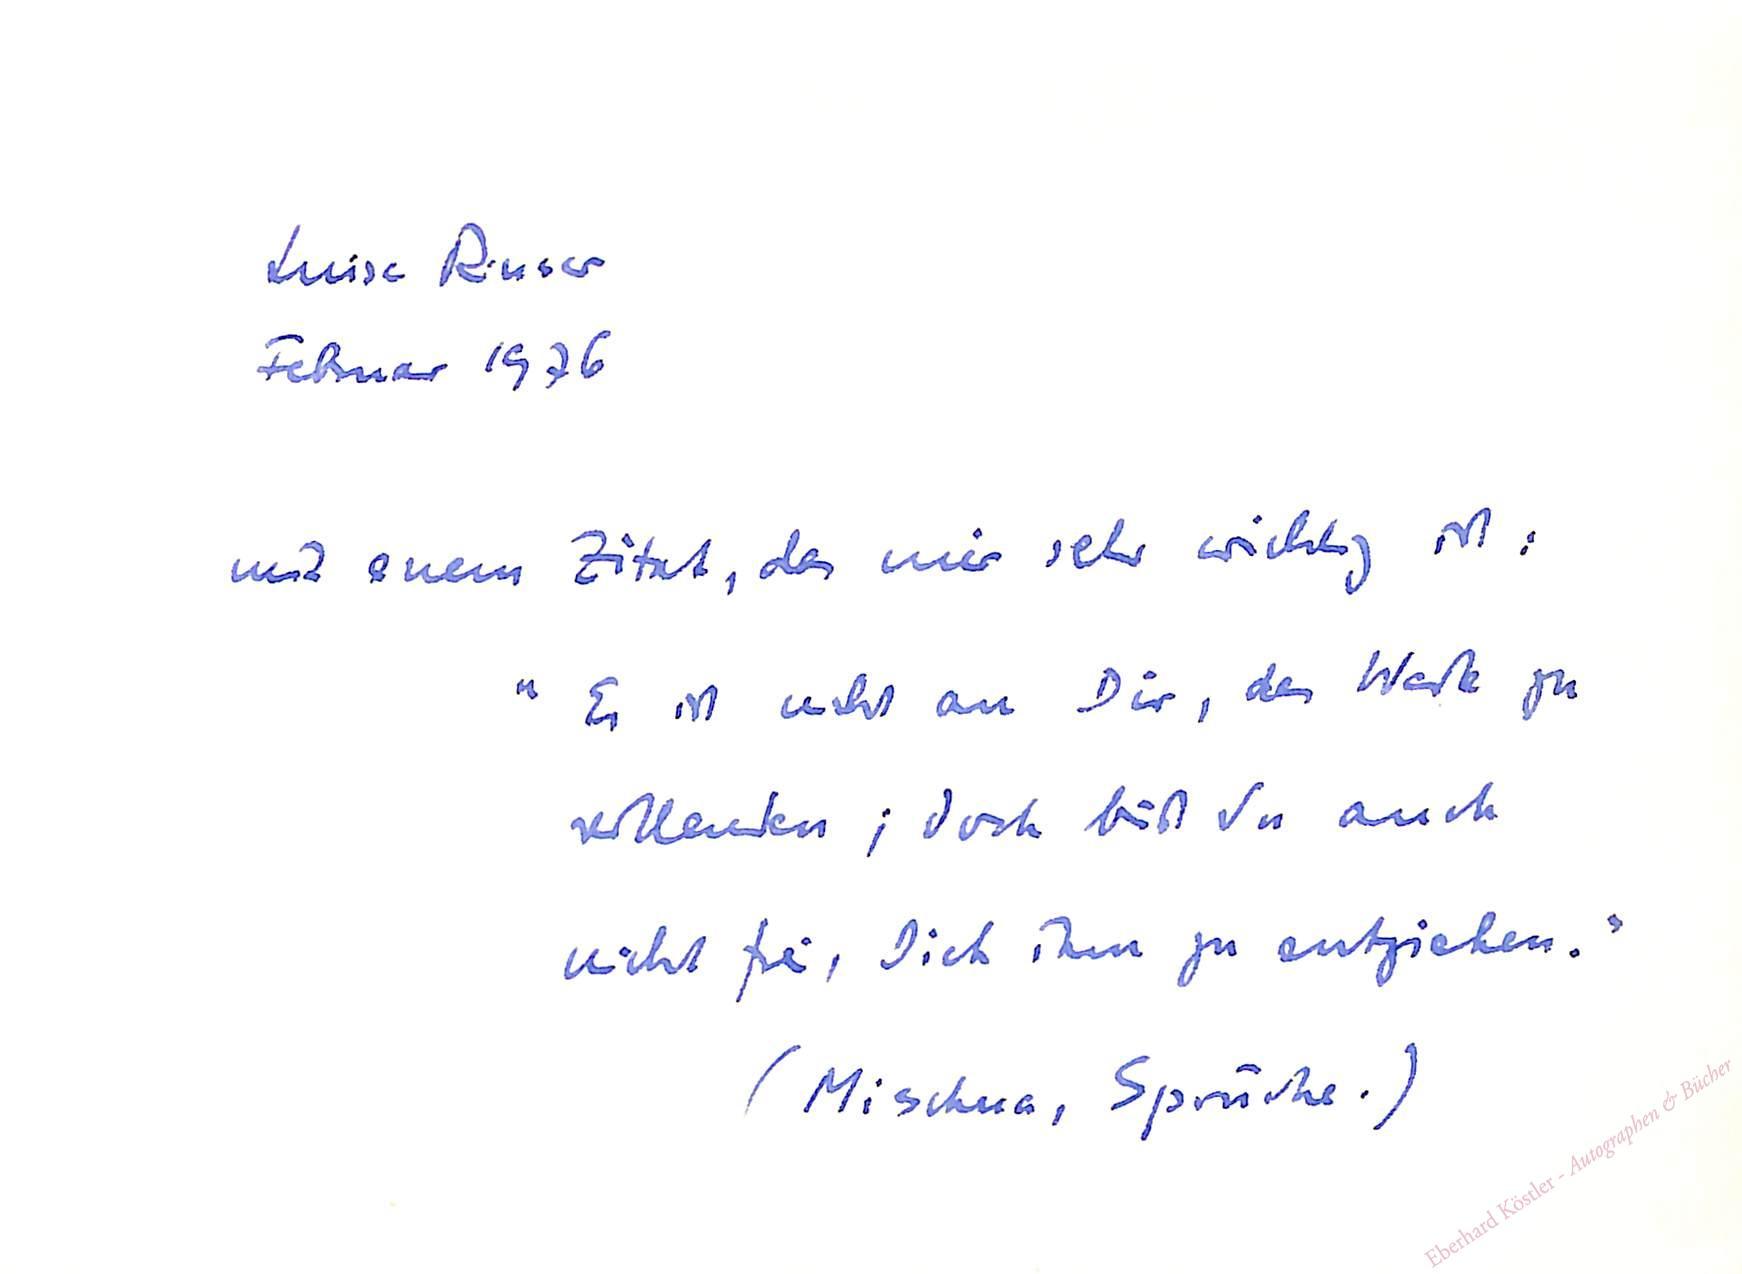 Luise Rinser
Februar 1976
mit einem Zitat, das mir sehr wichtig ist:
"Es ist nicht an Dir, das Werk zu
vollenden; doch bist Du auch
nicht frei, Dich ihm zu entziehen."
(Mischna, Sprüche.)
Eberhard Köstler - Autographen & Bücher